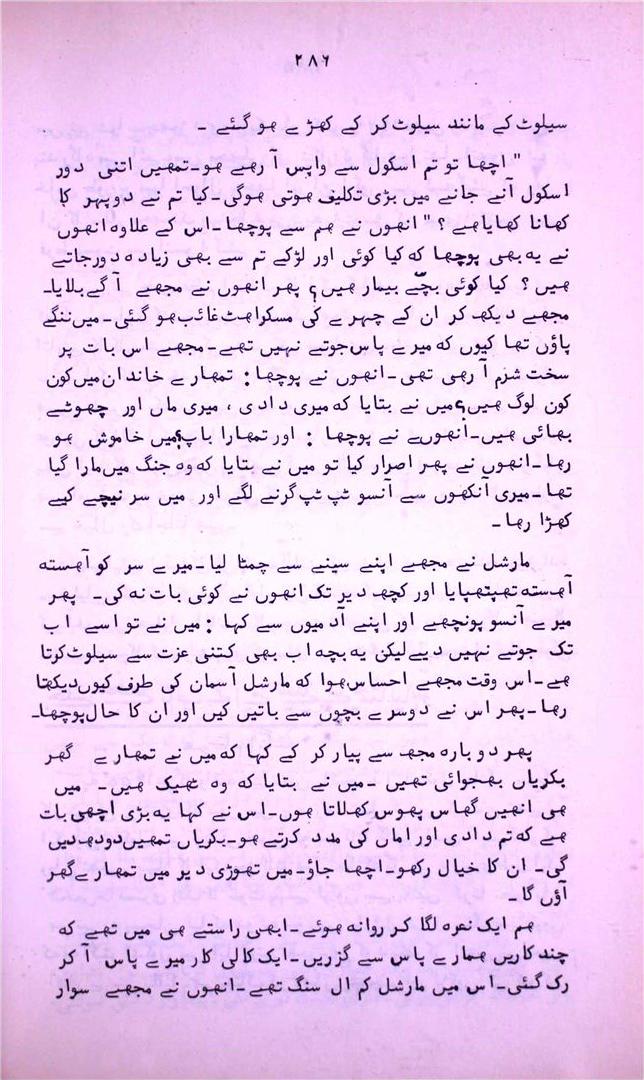 ۲۸۶
سیلوٹ کے مانند سیلوٹ کر کے کھڑے ہو گئے ۔
" اچھا تو تم اسکول سے واپس آ رہے ہو۔تمہیں اتنی دور
اسکول آنے جانے میں بڑی تکلیف ہوتی ہوگی۔کیا تم نے دوپہر کا
کھانا کھایا ہے ؟ " انھوں نے ہم سے پوچھا۔اس کے علاوہ انھوں
نے یہ بھی پوچھا کہ کیا کوئی اور لڑکے تم سے بھی زیادہ دور جاتے
ہیں ؟ کیا کوئی بچّے بیمار ہیں؟ پھر انھوں نے مجھے آگے بلایا۔
مجھے دیکھ کر ان کے چہرے کی مسکراہٹ غائب ہو گئی۔میں ننگے
پاؤں تھا کیوں کہ میرے پاس جوتے نہیں تھے۔مجھے اس بات پر
سخت شرم آ رہی تھی۔انھوں نے پوچھا: تمہارے خاندان میں کون
کون لوگ ہیں؟میں نے بتایا کہ میری دادی ، میری ماں اور چھوٹے
بھائی ہیں۔اُنھوں نے پوچھا : اور تمہارا باپ؟میں خاموش ہو
رہا۔انھوں نے پھر اصرار کیا تو میں نے بتایا کہ وہ جنگ میں مارا گیا
تھا۔میری آنکھوں سے آنسو ٹپ ٹپ گرنے لگے اور میں سر نیچے کیے
کھڑا رہا ۔
مارشل نے مجھے اپنے سینے سے چمٹا لیا۔میرے سر کو آہستہ
آہستہ تھپتھپایا اور کچھ دیر تک انھوں نے کوئی بات نہ کی۔ پھر
میرے آنسو پونچھے اور اپنے آدمیوں سے کہا : میں نے تو اسے اب
تک جوتے نہیں دیے لیکن یہ بچہ اب بھی کتنی عزت سے سیلوٹ کرتا
ہے۔اس وقت مجھے احساس ہوا کہ مارشل آسمان کی طرف کیوں دیکھتا
رہا۔پھر اس نے دوسرے بچوں سے باتیں کیں اور ان کا حال پوچھا۔
پھر دوبارہ مجھ سے پیار کر کے کہا کہ میں نے تمہارے گھر
بکریاں بھجوائی تھیں ۔میں نے بتایا کہ وہ ٹھیک ہیں۔ میں
ہی انھیں گھاس پھوس کھلاتا ہوں۔اس نے کہا یہ بڑی اچھی بات
ہے کہ تم دادی اور اماں کی مدد کرتے ہو۔بکریاں تمہیں دودھ دیں
گی۔ ان کا خیال رکھو۔اچھا جاؤ۔میں تھوڑی دیر میں تمہارے گھر
آؤں گا ۔
ہم ایک نعرہ لگا کر روانہ ہوئے۔ابھی راستے ہی میں تھے کہ
چند کاریں ہمارے پاس سے گزریں۔ایک کالی کار میرے پاس آ کر
رک گئی۔اس میں مارشل کم ال سنگ تھے۔انھوں نے مجھے سوار